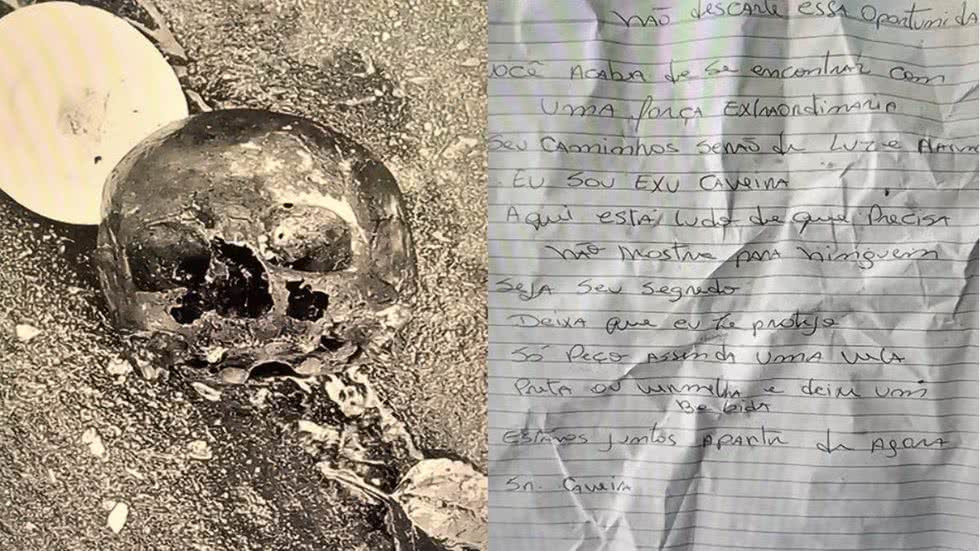 NÃO descarte essa oportunida
VOCÊ ACABA de se encontrar com
UMA força EXTRAORDINARIA
Seu CAMINHOS SERÃO de LUZ e
EU SOU EXU CAVEIRA
AQUI está tudo de que Precisa
NÃO MOSTRE PARA Ninguem
SEJA Seu Segredo
DEIXA que eu te protejo
SÓ Peço ASSENDA UMA VELA
Preta ou vermelha e deixe um
Bebida
ESTAMOS juntos APARTIR de AGORA
Sr. CAVEIRA